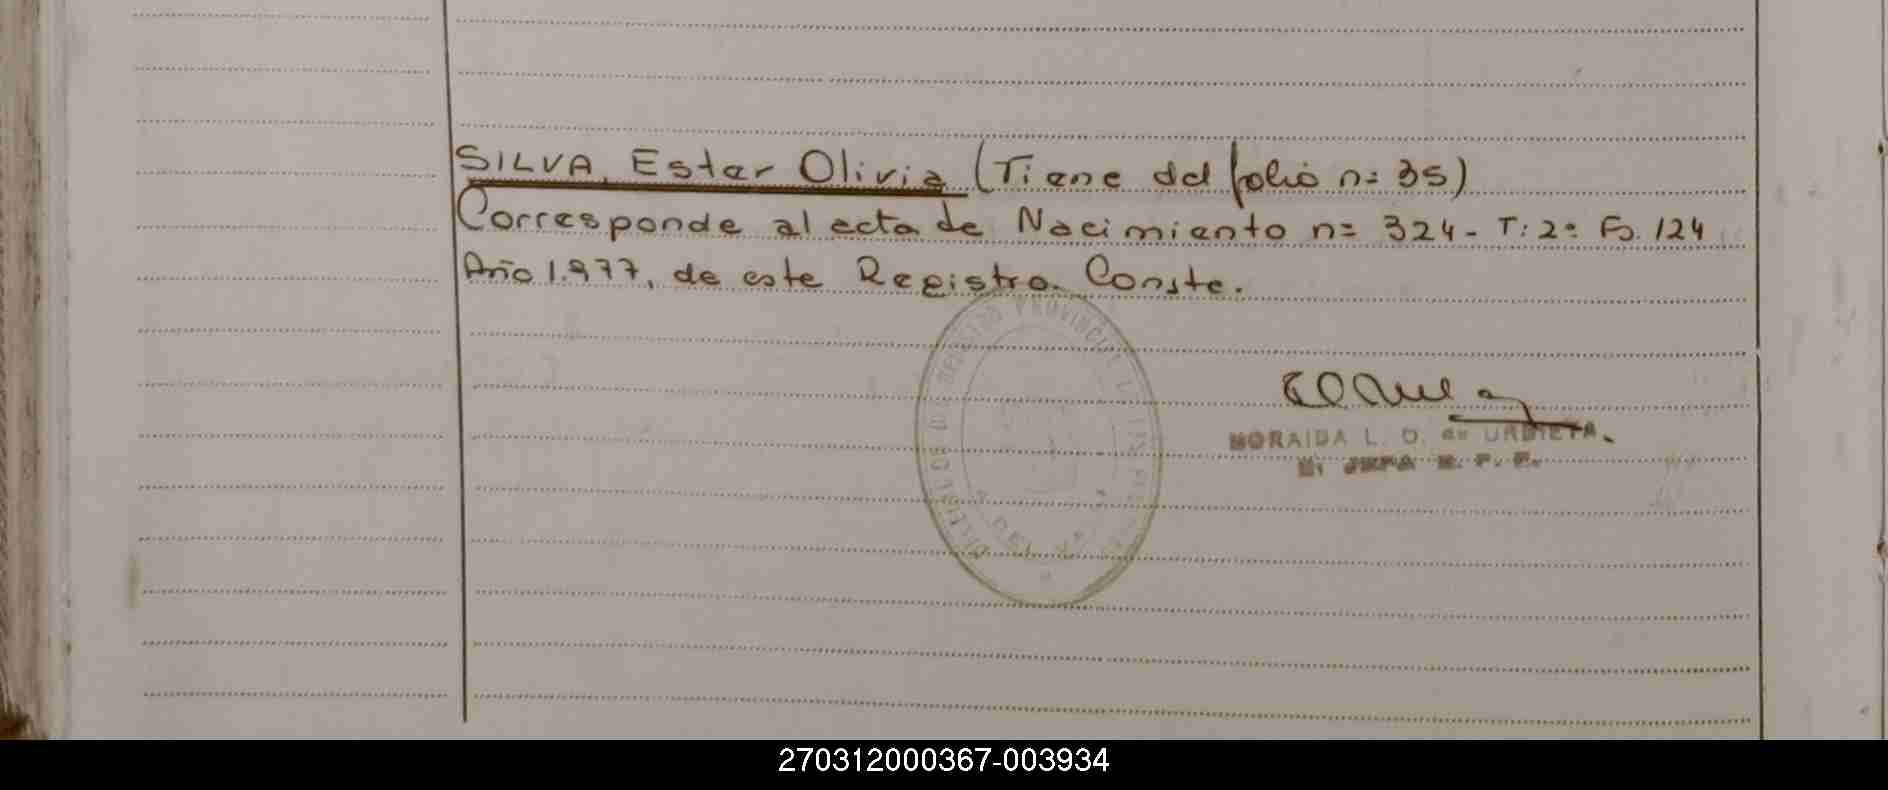 SILVA, Ester Olivia (Tiene del folio n= 35)
Corresponde al acta de Nacimiento n= 324- T: 2º Fo. 124
Año 1.977, de este Registro. Conste.
PROVINCIAL
L. O. de URBIETA
JEFA
270312000367-003934